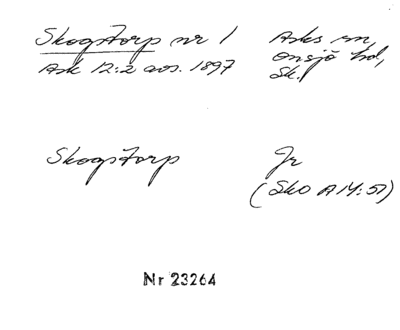 Skogstorp nr 1
Ask 12:2 avs. 1897
Asks sn,
Onsjö hd,
Sk.
Skogstorp
Jr
(Sko A14:51)
Nr 23264